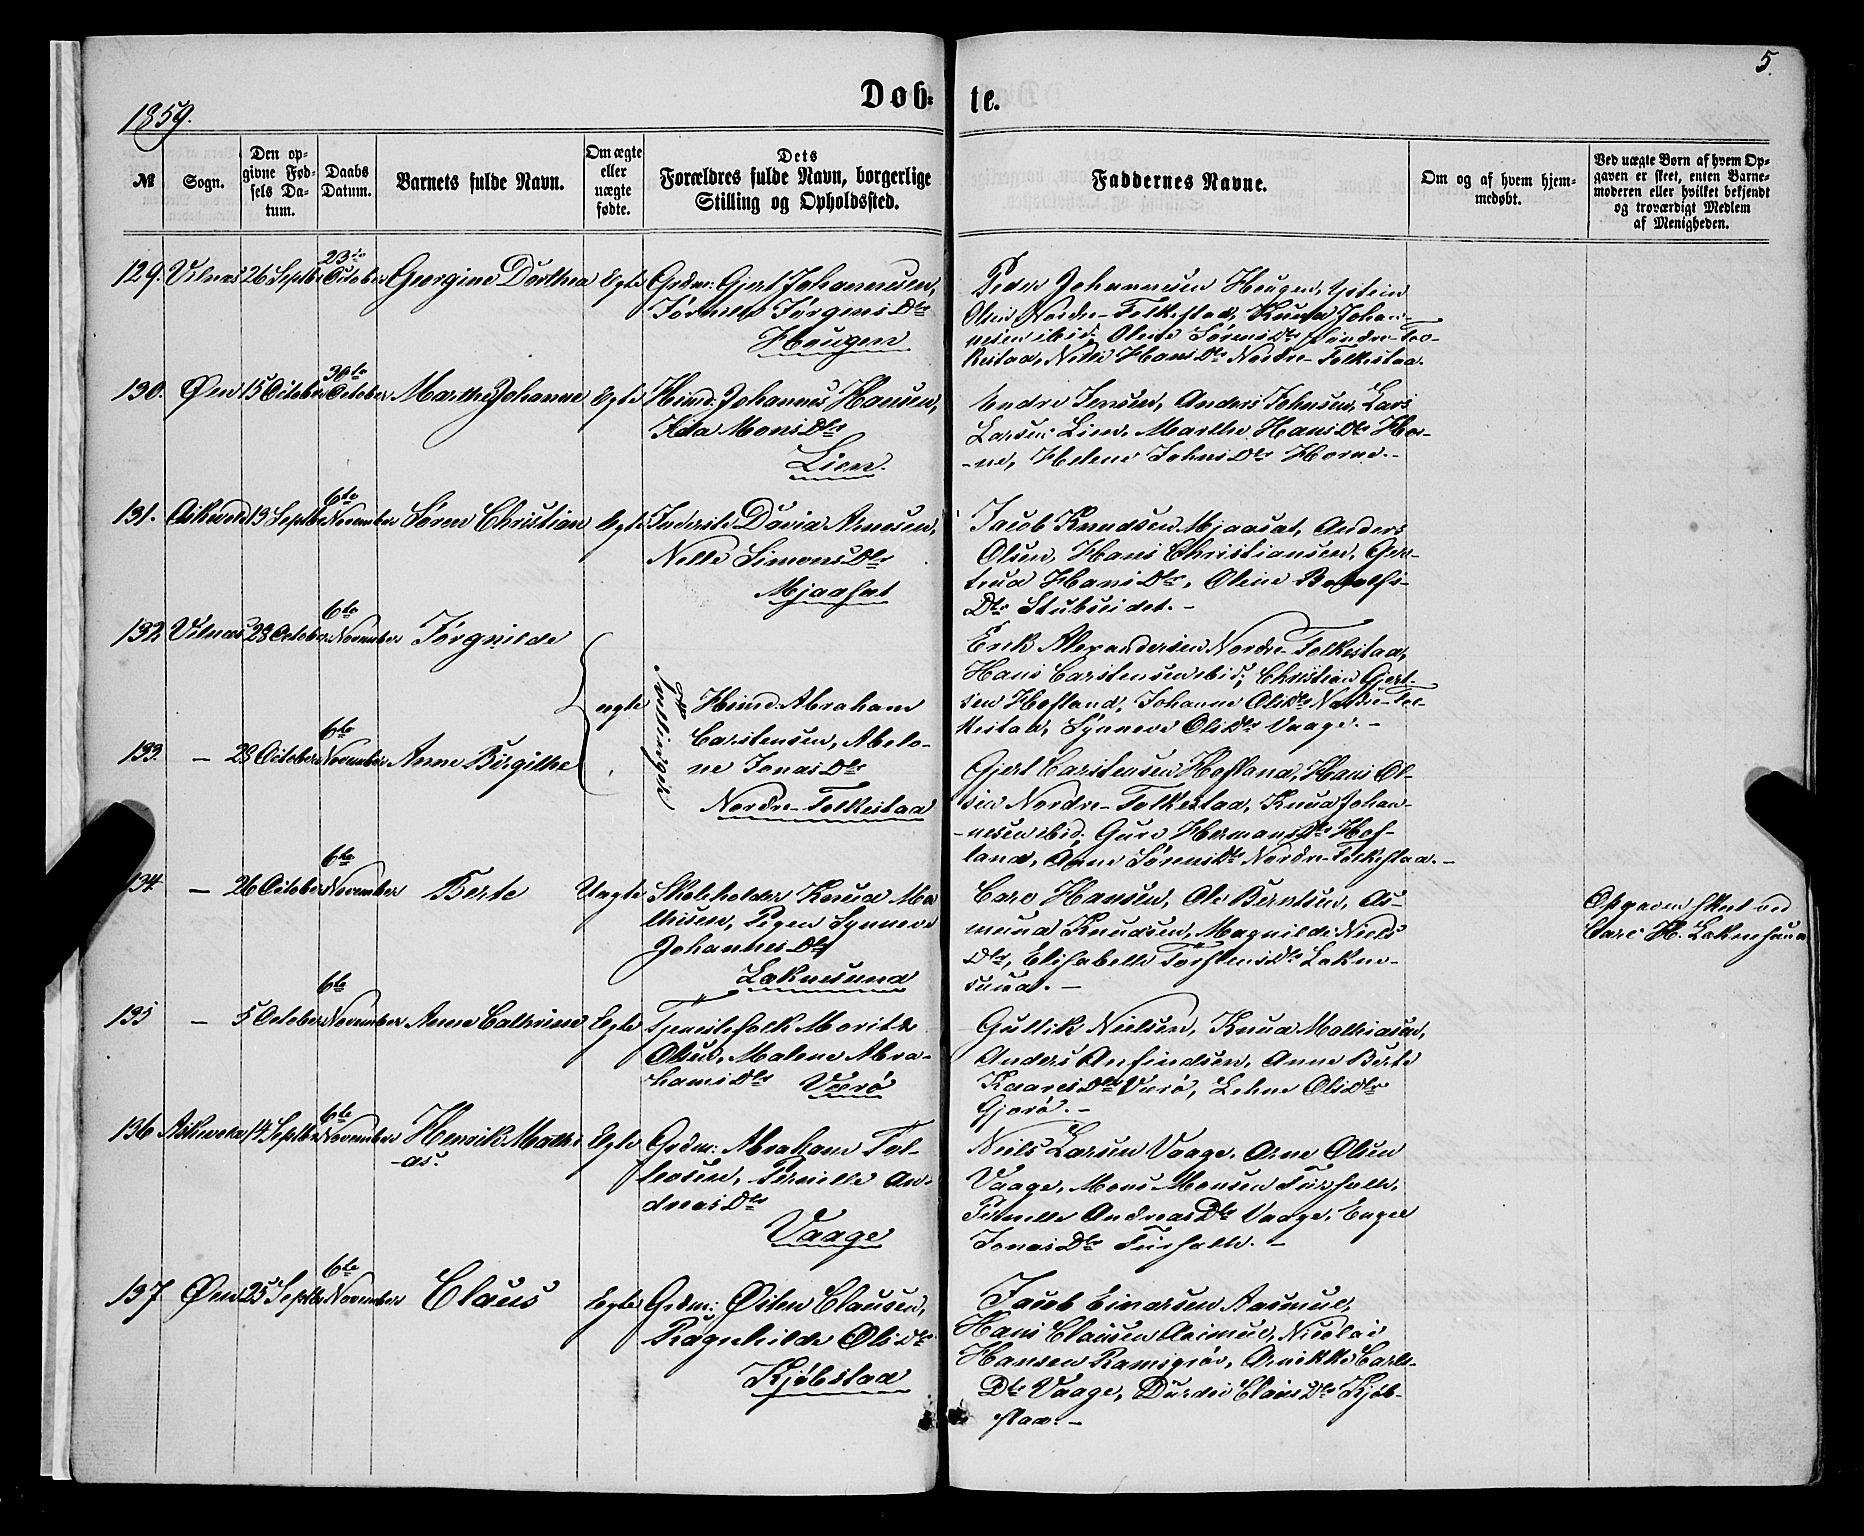 5.
Døb- te.
1859.
№
Sogn.
Den op-
givne Fød-
sels Da-
tum.
Daabs
Datum.
Barnets fulde Navn.
Om ægte
eller
uægte
fødte.
Dets
Forældres fulde Navn, borgerlige
Stilling og Opholdssted.
Faddernes Navne.
Om og af hvem hjem-
medøbt.
Ved uægte Børn af hvem Op-
gaven er skeet, enten Barne-
moderen eller hvilket bekjendt
og troværdigt Medlem
af Menigheden.
23de
129. Vilnæs 26 Septbr October Georgine Dorthea Egte Grdm: Gjert Johannesen,
Jørgens Dtr
Hougen
Peder Johannesen Hougen, Ystein
Olsen Nordre-Folkestad, Knud Johan-
nesen ibid; Oline Sørens Dtr Søndre-Fol-
kestad, Hans Dtr Nordre-Folkestad.
30te
130. Øen 15 October October Marthe Johanne Egte Huusmd: Johannes Hansen,
Ida Mons Dtr
Lien.
Endre Jensen, Anders Johnsen, Lars
Larsen Lien, Marthe Hans Dtr Hor-
ne, Helene Johns Dtr Horne.-
6te
131. Askevold 13 Septbr November Søren Christian Egte Inderst David Arnesen,
Nelle Simons Dtr
Mjaaset
Jacob Knudsen Mjaaset, Anders
Olsen, Hans Christiansen, Ger-
trud Hans Dtr, Oline Botolfs-
Dtr Stubseidet.-
6te
132 Vilnæs 28 October November Jørgnilde
ægte
Tvillinger
Huusmd. Abraham
Carstensen, Abelo-
ne Jonas Dtr
Nordre-Folkestad
Erik Alexandersen Nordre-Folkestad,
Hans Carstensen ibid; Christian Gjert-
sen Hofland, Johanne Ols Dtr Nordre-Fol-
kestad, Synneve Ols Dtr Vaage.-
6te
133. - 28 October November Anne Birgithe
Gjert Carstensen Hofland, Hans Ol-
sen Nordre-Folkestad, Knud Johan-
nesen ibid; Guro Hermans Dtr Hof-
land, Anne Sørens Dtr Nordre-Folkestad.-
6te
134. - 26 October November Berte Uægte Skoleholder Knud Ma-
thisen, Pigen Synneve
Johannes Dtr
Laknesund
Carl Hansen, Ole Berntsen, As-
mund Knudsen, Magnilde Niels
Dtr, Elisabethe Torstens Dtr Lakne-
sund.-
Opgaven skeet ved
Carl H. Laknesund
6te
135 - 5 October November Anne Cathrine Egte Tjenestefolk Morits
Olsen, Malene Abra-
hams Dtr Værø
Gullik Nielsen, Knud Mathiasen,
Anders Anfindsen, Anne Berte
Kaares Dtr Værø, Lehne Ols Dtr
Gjørø.-
6te
136 Askevold 14 Septbr November Henrik Mathi-
-as.
Egte Grdm: Abraham Tol-
lefsen, Pernille An-
dreas Dtr
Vaage
Niels Larsen Vaage, Arne Olsen
Vaage, Mons Monsen
Pernille Andreas Dtr Vaage, Engel
Jonas Dtr
6te
137 Øen 25 Septbr November Claus Egte Grdm: Østen Clausen,
Ragnhilde Ols Dtr
Kjøbstad
Jacob Einarsen Aasmul,
Hans Clausen Aasmul, Nicolai
Hansen Carls-
Dtr Vaage, Durdei Claus Dtr Kjøb-
stad.-